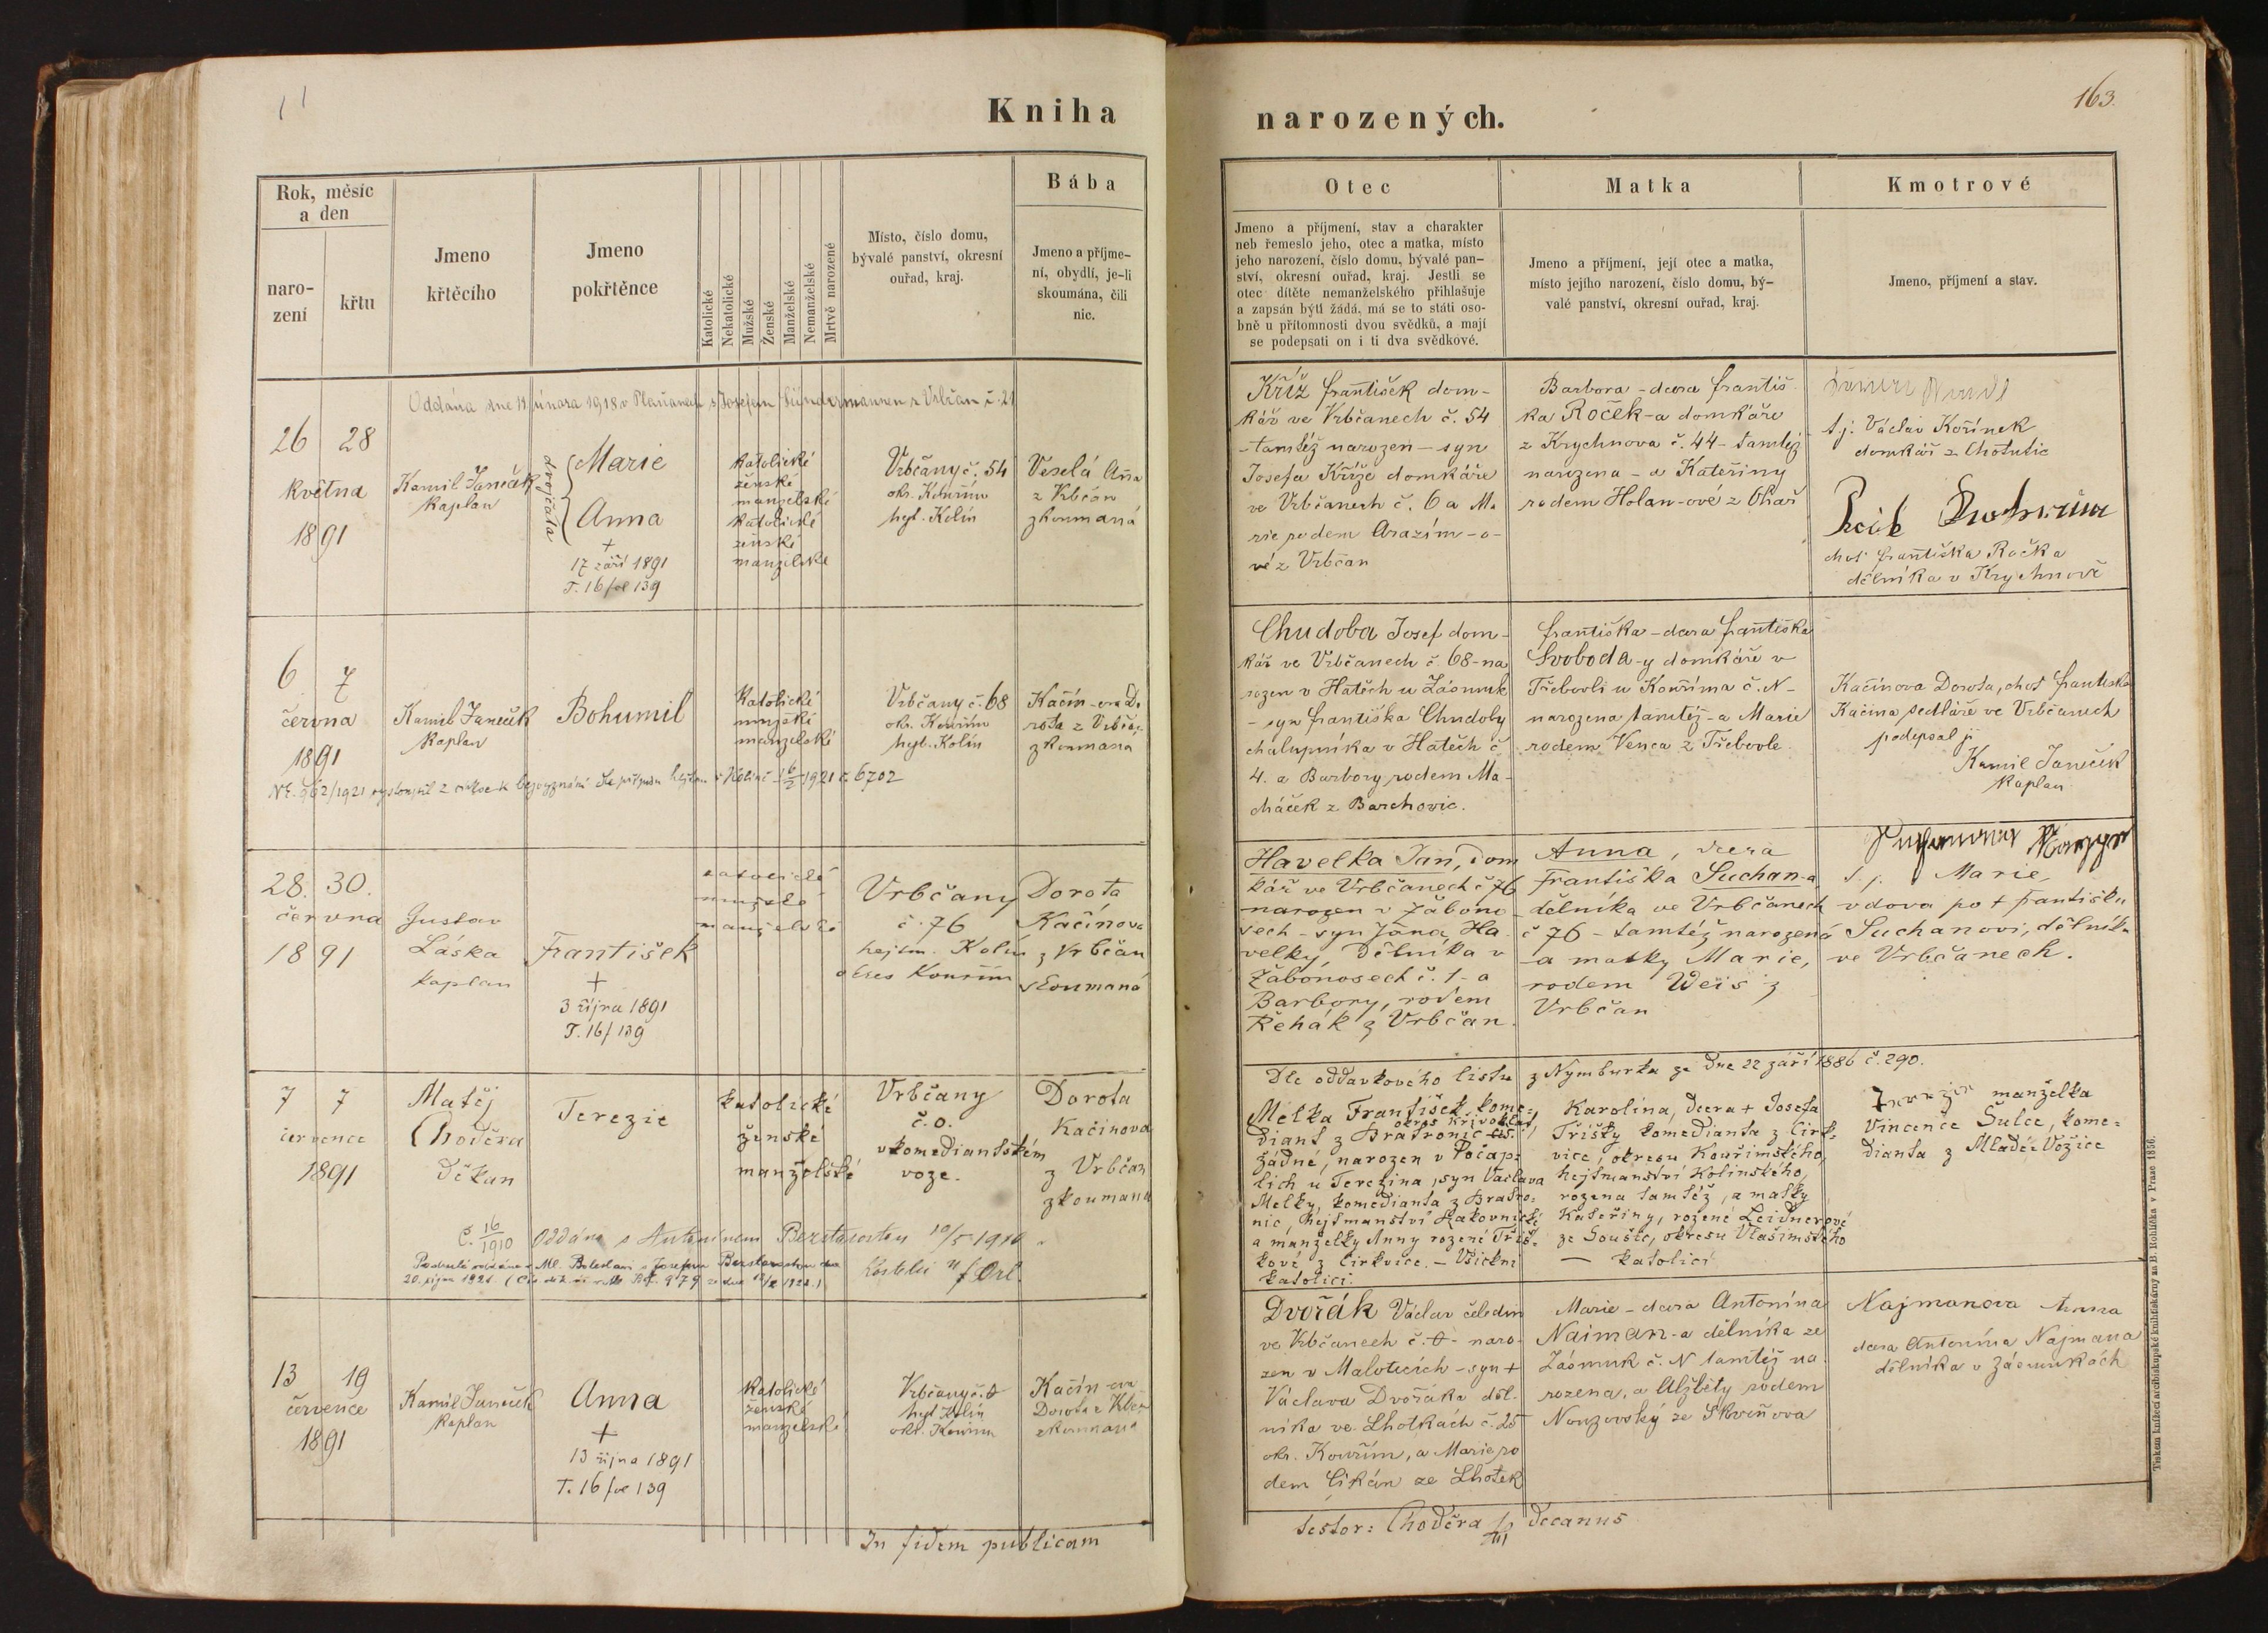 Kniha
narozených.
163.
Rok, měsíc
a den
naro-
zení
křtu
Jmeno
křtěcího
Jmeno
pokřtěnce
Katolické
Nekatolické
Mužské
Ženské
Manželské
Nemanželské
Mrtvě narozené
Místo, číslo domu,
bývalé panství, okresní
ouřad, kraj.
Bába
Jmeno a příjme-
ní, obydlí, je-li
skoumána, čili
nic.
Otec
Jmeno a příjmení, stav a charakter
neb řemeslo jeho, otec a matka, místo
jeho narození, číslo domu, bývalé pan-
ství, okresní ouřad, kraj. Jestli se
otec dítěte nemanželského přihlašuje
a zapsán býti žádá, má se to státi oso-
bně u přítomnosti dvou svědků, a mají
se podepsati on i ti dva svědkové.
Matka
Jmeno a příjmení, její otec a matka,
místo jejího narození, číslo domu, bý-
valé panství, okresní ouřad, kraj.
Kmotrové
Jmeno, příjmení a stav.
Oddána dne 11 února 1918 v Plaňanech s Josefem z Vrbčan č. 21
26 28
května
1891
Kamil Janeček
Kaplan
dvojčata
Marie
Anna
+
17 září 1891
T. 16 fol 139
katolické
ženské
manželské
katolické
ženské
manželské
Vrbčany č. 54
okr. Kouřim
hejt. Kolín
Veselá Ana
z Vrbčan
zkoumaná
Kříž František dom-
kář ve Vrbčanech č. 54
- tamtéž narozen - syn
Josefa Kříže domkáře
ve Vrbčanech č. 6 a Ma
rie rodem Arazím-o-
vé z Vrbčan
Barbora - dcera Františ
ka Roček-a domkáře
z Krychnova č. 44 - tamtéž
narozena - a Kateřiny
rodem Holan-ové z Okař
t. j. Václav Kořínek
domkář z Chotutic
choť Františka Ročka
dělníka v Krychnově
6 7
června
1891
Kamil Janeček
Kaplan
Bohumil
Katolické
mužské
manželské
Vrbčany č. 68
okr. Kouřim
hejt. Kolín
Kačín-ova Do
rota z Vrbčan
zkoumaná
NE. 962/1921 vystoupil z církve k bezvyznání hejtm. v Kolíně 1921 č. 6702
Chudoba Josef dom-
kář ve Vrbčanech č. 68 - na
rozen v Hatěch u Zásmuk
- syn Františka Chudoby
chalupníka v Hatěch č
4. a Barbory rodem Ma-
cháček z Barchovic.
Františka - dcera Františka
Svoboda-y domkáře v
Třebovli u Kouřima č. N -
narozena tamtéž - a Marie
rodem Venca z Třebovle
Kačínova Dorota, choť Františka
Kačína sedláře ve Vrbčanech
podepsal ji
Kamil Janeček
Kaplan
28. 30.
června
1891
Gustav
Láska
kaplan
František
+
3 října 1891
T. 16/139
katolické
mužské
manželské
Vrbčany
č. 76
hejtm. Kolín
okres Kouřim
Dorota
Kačínova
z Vrbčan
skoumaná
Havelka Jan, dom
kář ve Vrbčanech č 76
narozen v Žabono
sech - syn Jana Ha
velky, dělníka v
Žabonosech č. 1 - a
Barbory, rodem
Řehák z Vrbčan.
Anna, dcera
Františka Suchan-a
dělníka ve Vrbčanech
č 76 - tamtéž narozená
a matky Marie,
rodem Weis z
Vrbčan
t. j. Marie,
vdova po + Františku
Suchanovi, dělník.
ve Vrbčanech.
7 7
července
1891
Matěj
Choděra
děkan
Terezie
katolické
ženské
manželské
Vrbčany
č. 0.
v komediantském
voze.
Dorota
Kačínova
z Vrbčan
zkoumana
Č. 16/1910 Oddána s Antonínem Bezstarostou 10/5 1910
Ml. Boleslavi s Josefem Bezstarostou
20. října 1921.
Dle oddavkového listu z Nymburka ze dne 22 září 1886 č. 290.
Melka František kome=
okres Křivoklát,
diant z Bratronic čís.
žádné, narozen v Počap=
lich u Terezina, syn Václava
Melky, komedianta z Bratro=
nic, hejtmanství Rakovnické
a manželky Anny rozené Tříš=
kové z Cirkvice. - Všickni
katolíci.
Karolina, dcera + Josefa
Tříšky komedianta z Cirk=
vice, okresu Kouřimského,
hejtmanství Kolínského,
rozena tamtéž, a matky
Kateřiny, rozené Leidnerové
ze Souště, okresu Vlašimského
- katolíci
manželka
Vincence Šulce, kome=
dianta z Mladé Vožice
13 19
července
1891
Kamil Janeček
Kaplan
Anna
+
13 října 1891
T. 16 fol 139
Katolické
ženské
manželské
Vrbčany č. 0
hejt Kolín
okr. Kouřim
Kačín-ova
Dorota z Vrbčan
zkoumaná
Dvořák Václav čeledín
ve Vrbčanech č. 0 - naro-
zen v Maloticích - syn +
Václava Dvořáka děl-
níka ve Lhotkách č. 25
okr. Kouřim, a Marie ro
dem Cikán ze Lhotek
Marie - dcera Antonína
Naiman-a dělníka ze
Zásmuk č. N tamtéž na
rozena, a Alžběty rodem
Nouzovský ze Skvrňova
Najmanova Anna
dcera Antonína Najmana
dělníka v Zásmukách
In fidem publicam
testor: Choděra decanus
Tiskem knížecí arcibiskupské knihtiskárny za B. Rohlíčka v Praze 1856.